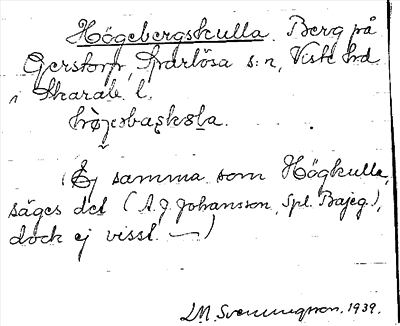 Högebergskulla. Berg på
Gerstorp, Sparlösa s:n, Viste hd
i Skarab. l.
(Ej samma som Högkulla,
säges det (A.J. Johansson, Spl. Bajeg.),
dock ej visst. —)
L.M. Svenningsson. 1939.